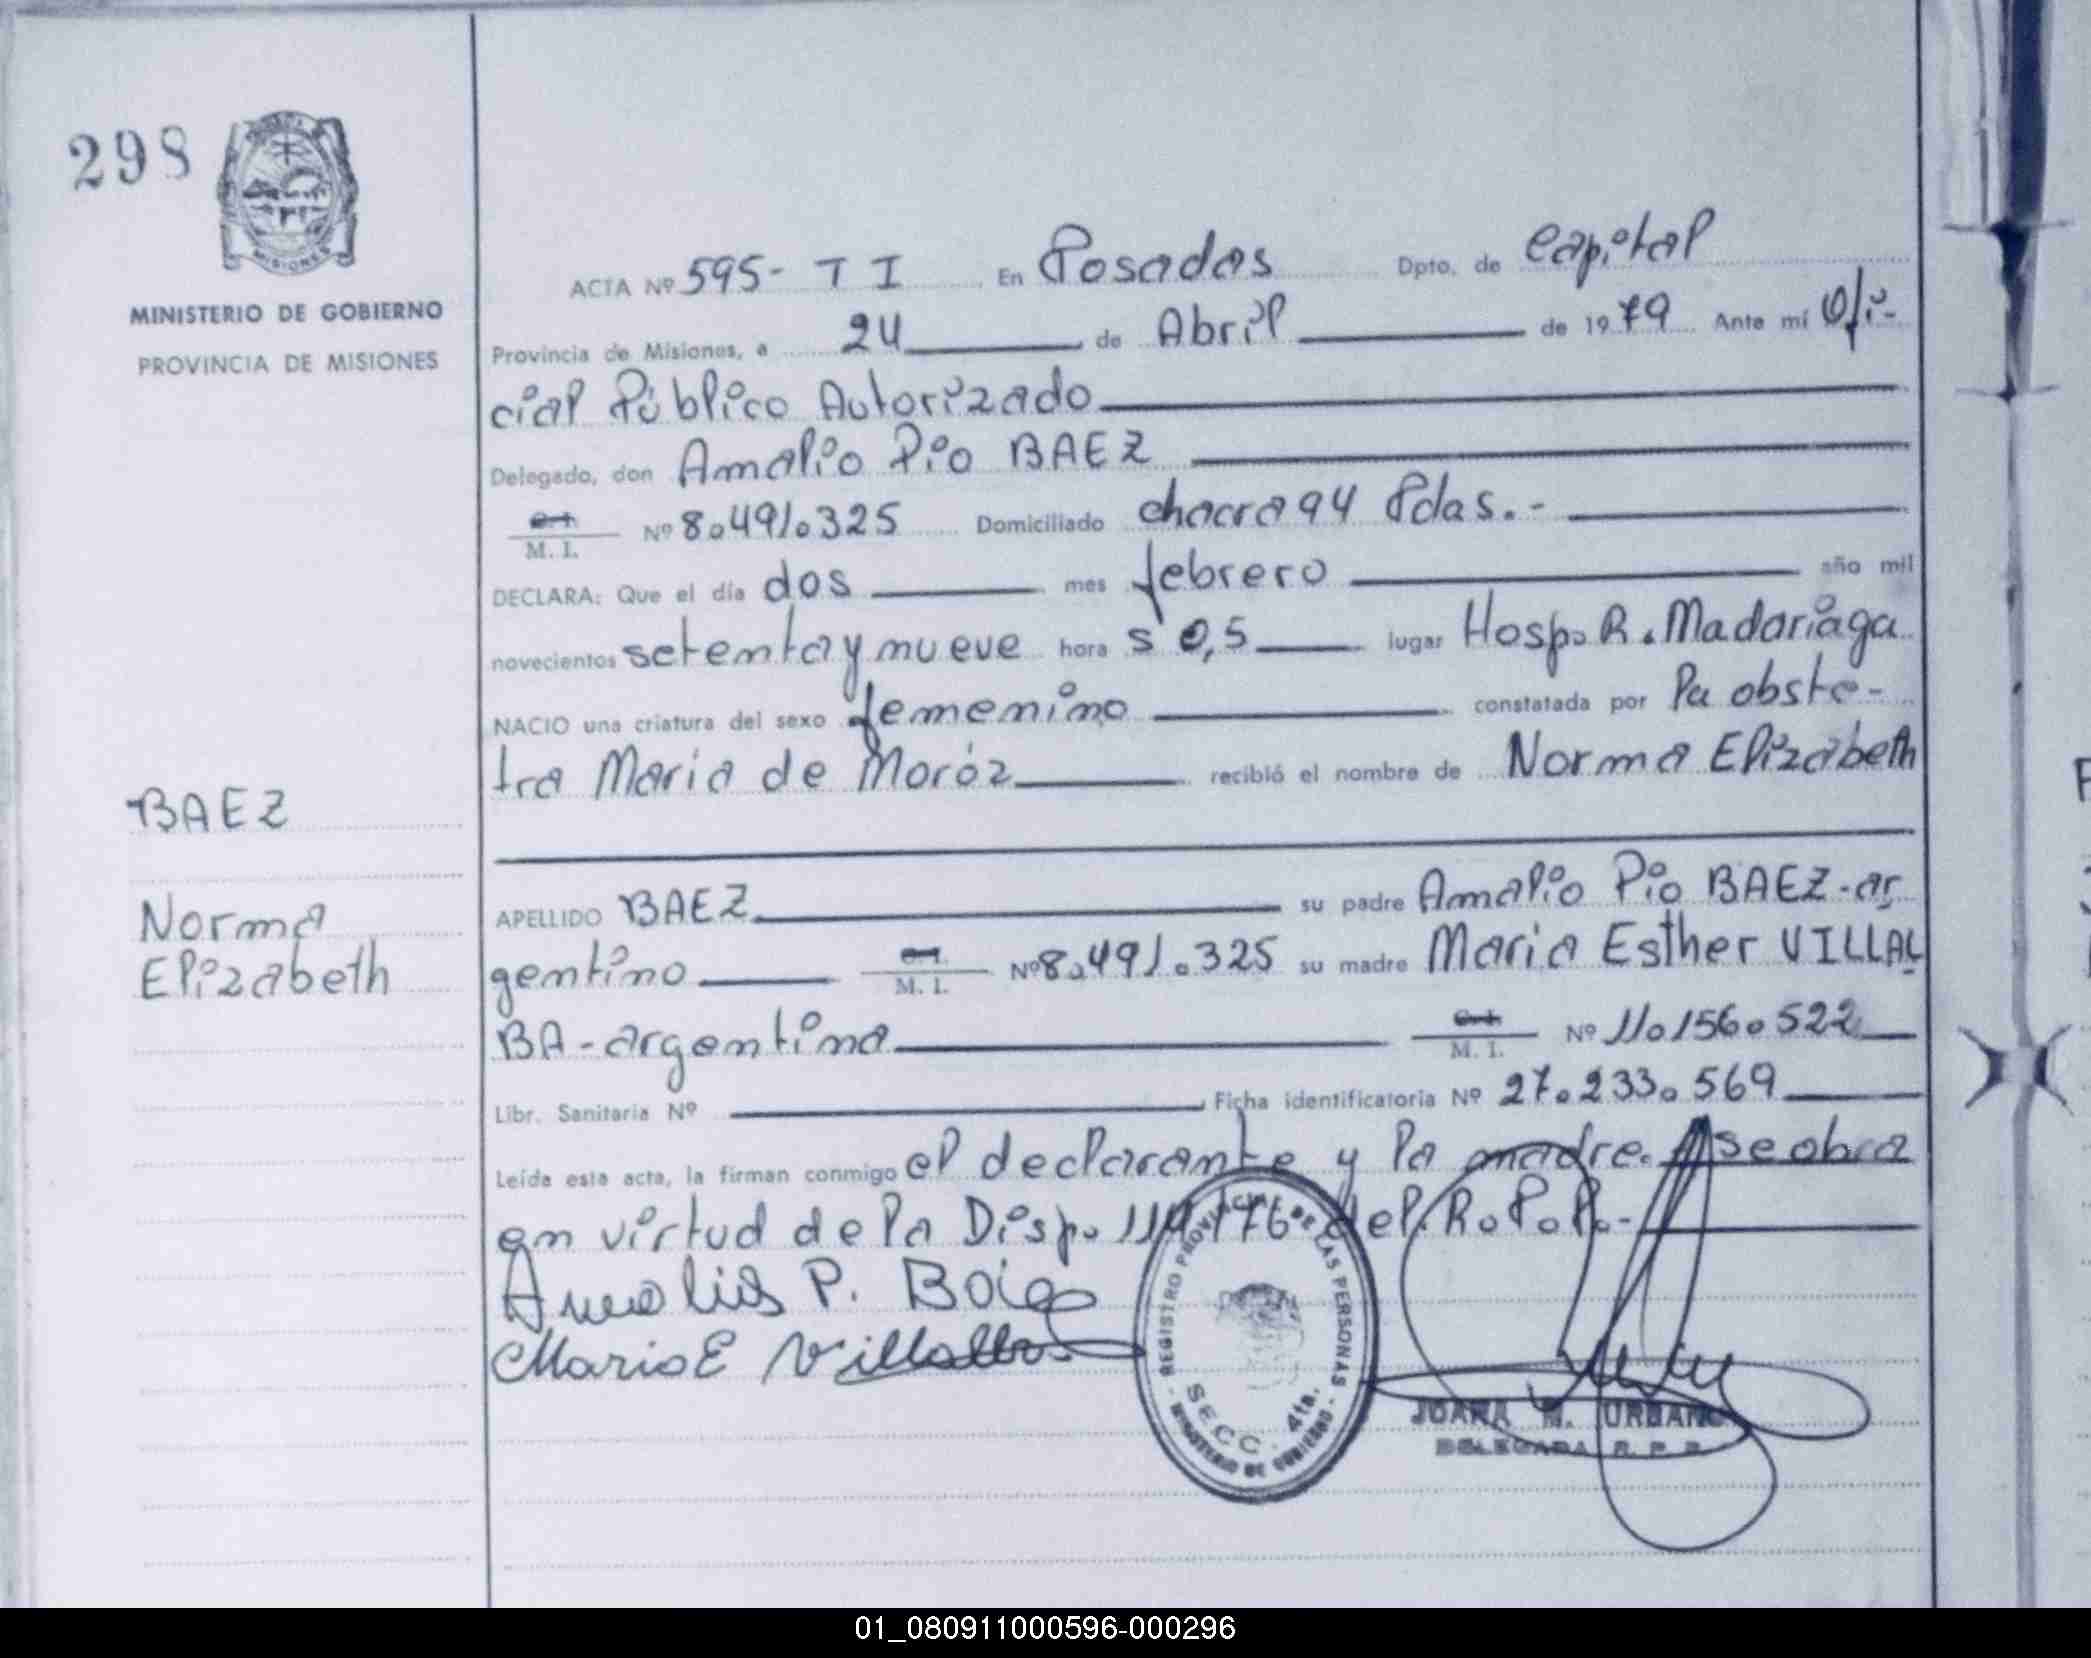 298
MISIONES
MINISTERIO DE GOBIERNO
PROVINCIA DE MISIONES
BAEZ
Norma
Elizabeth
ACTA Nº 595- T I En Posadas Dpto. de Capital
Provincia de Misiones, a 24 de Abril de 1979 Ante mí Ofi-
cial Público Autorizado
Delegado, don Amalio Pio BAEZ
M. I. Nº 8.491.325 Domiciliado chacra 94 Pdas.-
DECLARA: Que el día dos mes febrero año mil
novecientos setenta y nueve hora s 0,5 lugar Hosp. R. Madariaga
NACIO una criatura del sexo femenino constatada por la obste-
tra Maria de Moroz recibió el nombre de Norma Elizabeth
APELLIDO BAEZ su padre Amalio Pio BAEZ-ar
gentino M. I. Nº 8.491.325 su madre Maria Esther VILLAL
BA-argentina M. I. Nº 11.156.522
Libr. Sanitaria Nº Ficha identificatoria Nº 27.233.569
Leída esta acta, la firman conmigo el declarante y la madre. se obra
en virtud de la Disp. 114/76 del R.P.P.-
Amalio P. Baez
Maria E Villalba
REGISTRO PROVINCIAL DE LAS PERSONAS
SECC. 4ta.
MINISTERIO DE GOBIERNO
JUANA M. URBANO
DELEGADA R. P. P.
01_080911000596-000296